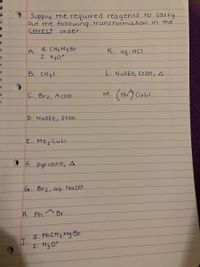 Supply the required reagents to carry
out the following transformation in the
correct order.
A. 1. CH3MgBr
2. H3O+
K. aq. HCl
B. CH3I
L. NaOEt, EtOH, Δ
C. Br2, AcOH
M. (Ph)2CuLi
D. NaOEt, EtOH
E. Me2CuLi
F. pyridine, Δ
G. Br2, aq. NaOH
H. Ph Br
J. 1. PhCH2MgBr
2. H3O+